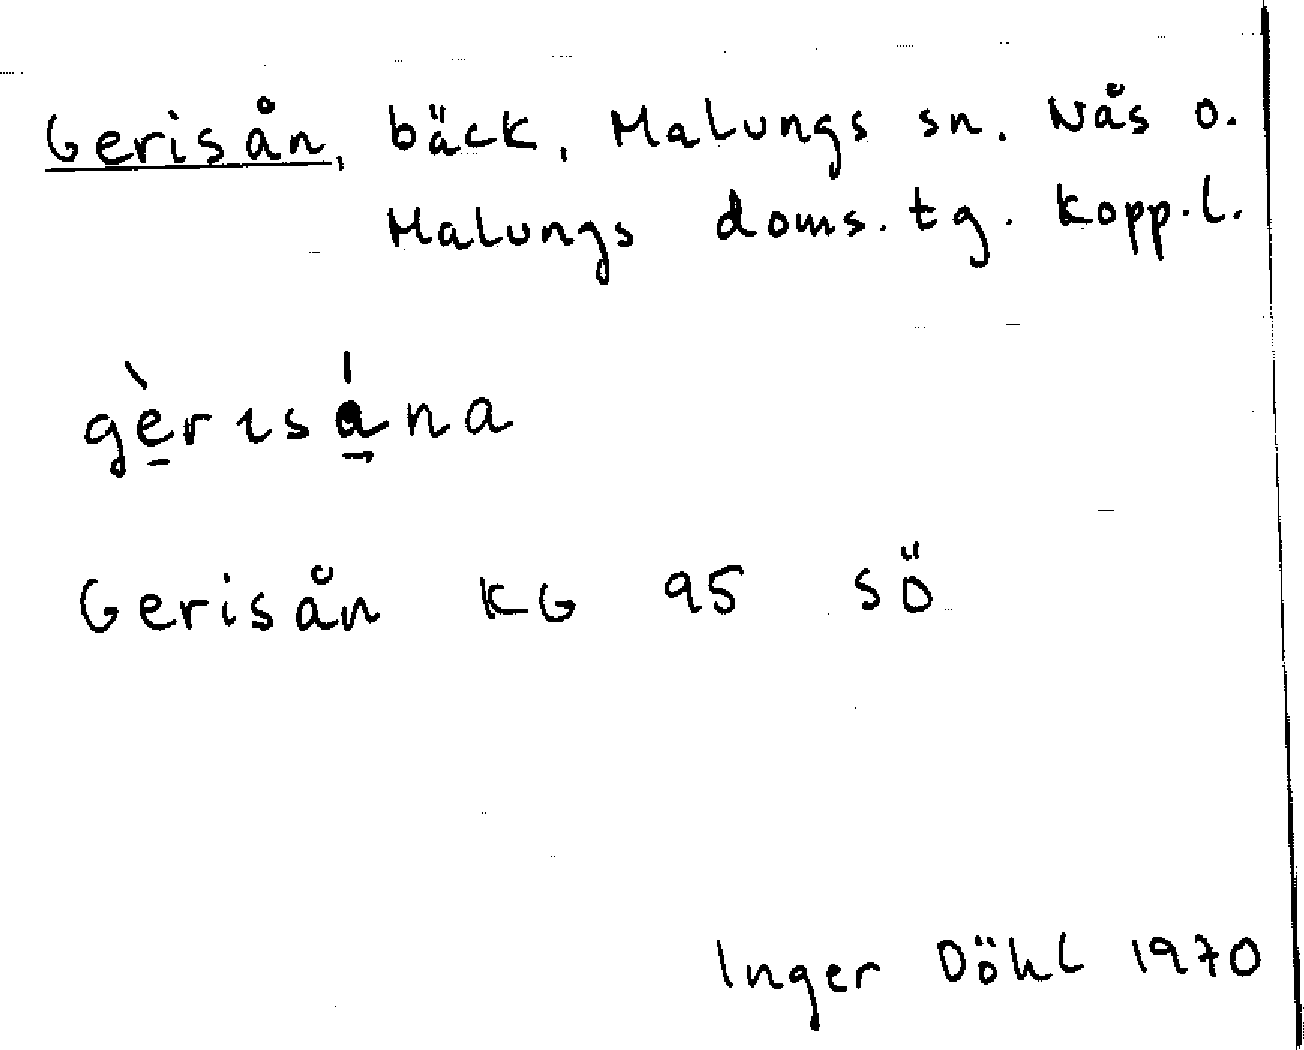 Gerisån, bäck, Malungs sn. Nås o.
Malungs doms. tg. Kopp.l.
gèrısána
Gerisån KG 95 SÖ
Inger Döhl 1970